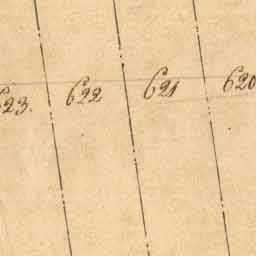 623. 622 621 620